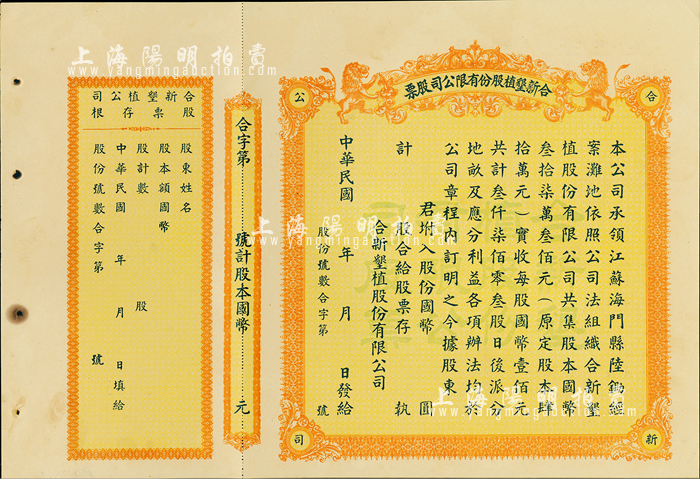 合新墾植股份有限公司股票
合
新
公
司
本公司承領江蘇海門縣陸
經
案灘地依照公司法組織合新墾
植股份有限公司共集股本國幣
叁拾柒萬叁佰元（原定股本肆
拾萬元）實收每股國幣壹佰元
共計叁仟柒佰零叁股日後派分
地畝及應分利益各項辦法均於
公司章程內訂明之今據股東
君坿入股份國幣 圓
計 股合給股票存 執
合新墾植股份有限公司
中華民國 年 月 日發給
股份號數合字第 號
合字第 號計股本國幣 元
合新墾植公司
股票存根
股東姓名
股本額國幣
股計數 股
中華民國 年 月 日填給
股份號數合字第 號
上海陽明拍賣
www.yangmingauction.com
上海陽明拍賣
www.yangmingauction.com
上海陽明拍賣
www.yangmingauction.com